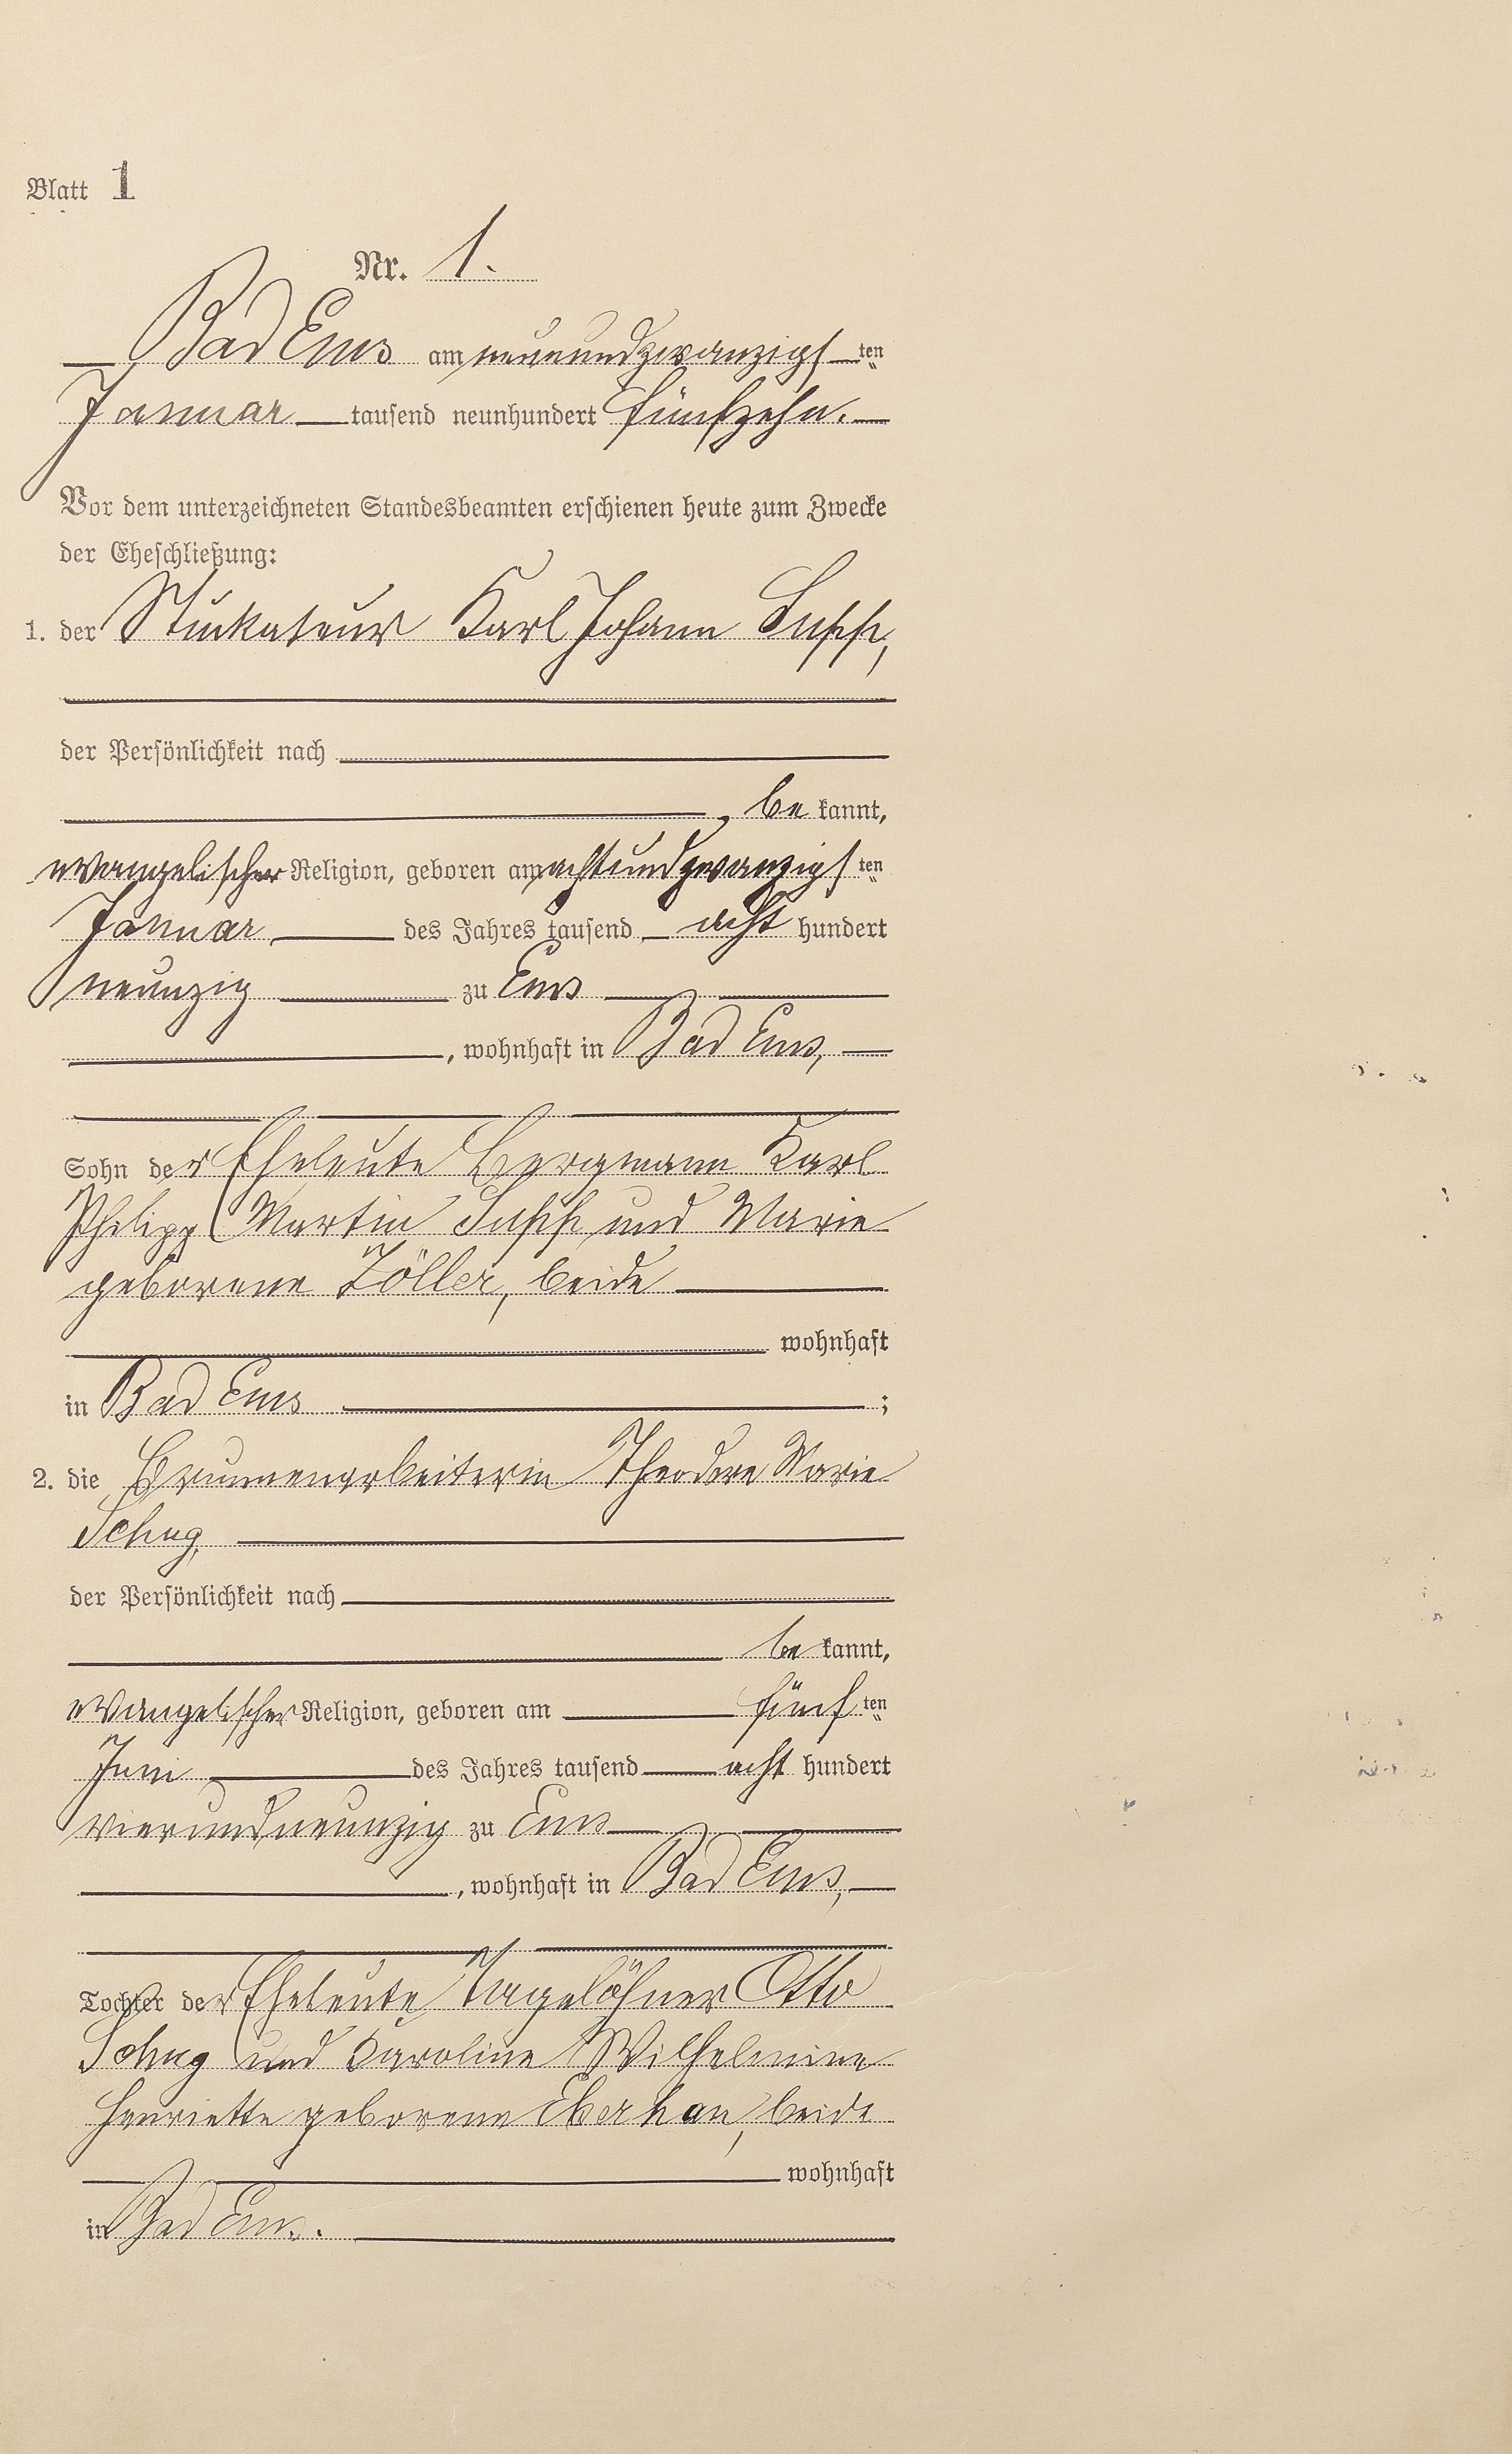 Blatt 1
Nr. 1.
Bad Ems am neunundzwanzigsten
Januar tausend neunhundert fünfzehn.
Vor dem unterzeichneten Standesbeamten erschienen heute zum Zwecke
der Eheschließung:
1. der Stuckateur Karl Johann
der Persönlichkeit nach
, be kannt,
evangelischer Religion, geboren am achtundzwanzigsten
Januar des Jahres tausend acht hundert
neunzig zu Ems
, wohnhaft in Bad Ems,
Sohn der Eheleute Bergmann Karl
Philipp Martin und Marie
geborene Zöller, beide
wohnhaft
in Bad Ems ;
2. die Brunnenarbeiterin Theodore Marie
Schug,
der Persönlichkeit nach
be kannt,
evangelischer Religion, geboren am fünften
Juni des Jahres tausend acht hundert
vierundneunzig zu Ems
, wohnhaft in Bad Ems,
Tochter der Eheleute Tagelöhner Otto
Schug und Karoline Wilhelmine
Henriette geborene beide
wohnhaft
in Bad Ems.